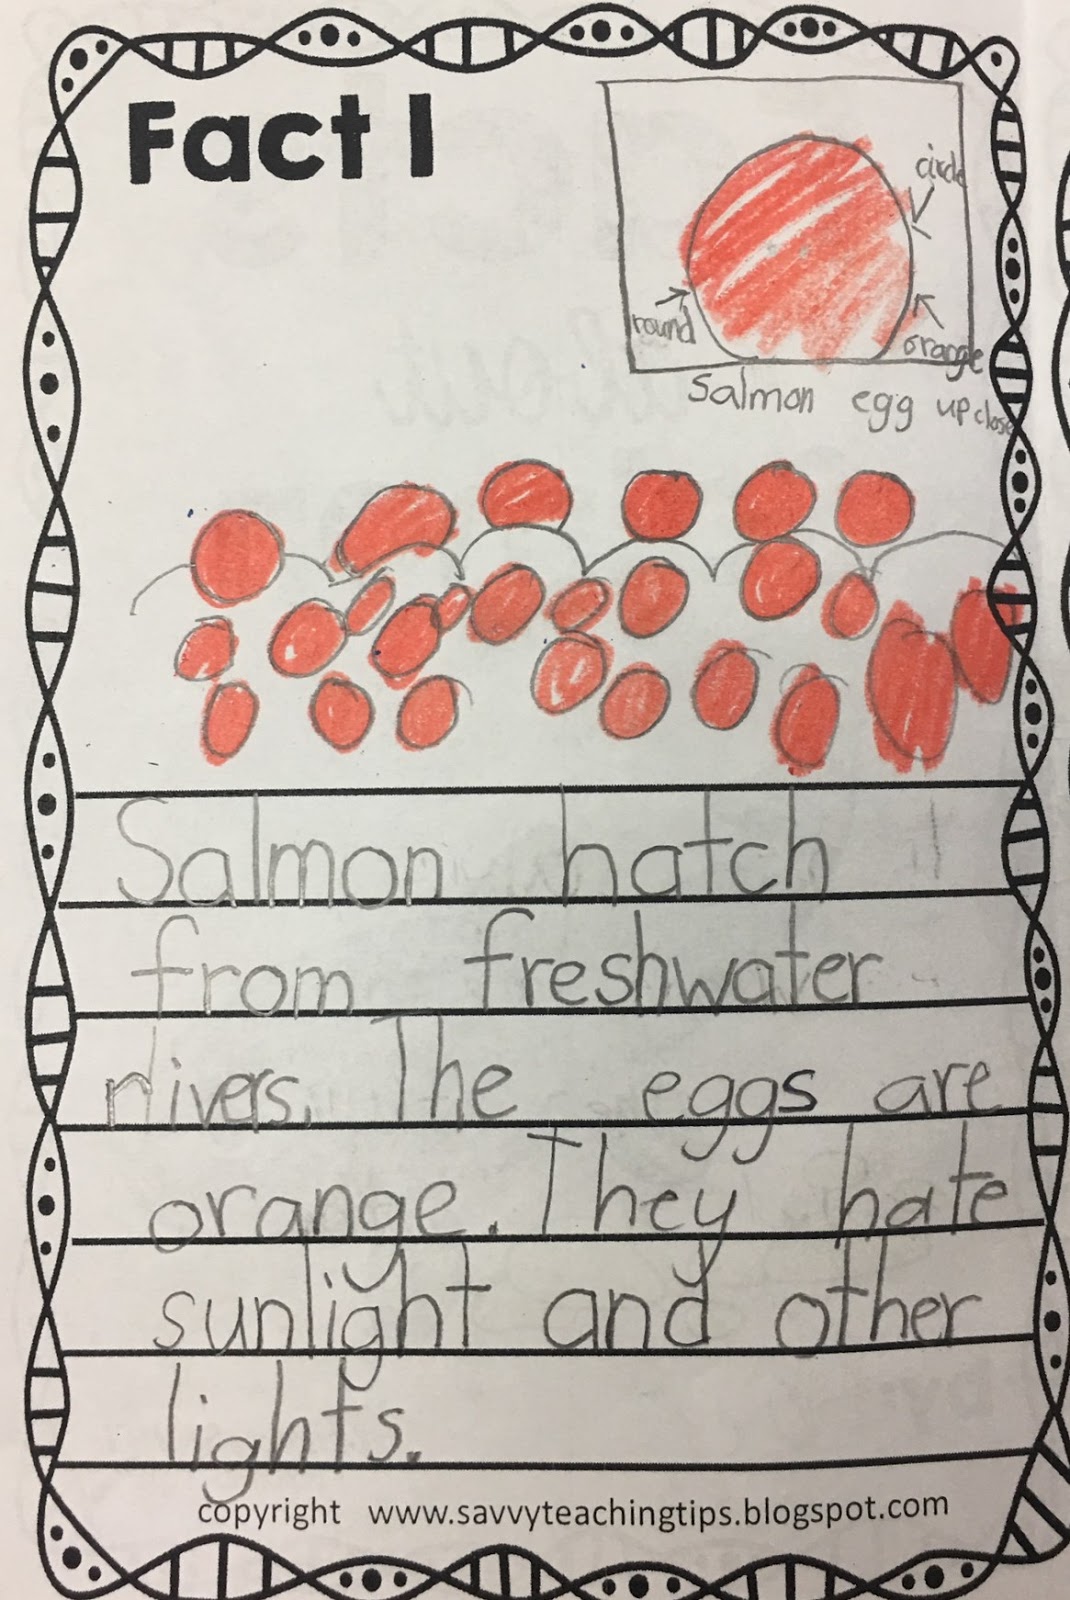 Fact 1
circle
round
orange
Salmon egg up close
Salmon hatch
from freshwater
rivers. The eggs are
orange. They hate
sunlight and other
lights.
copyright www.savvyteachingtips.blogspot.com